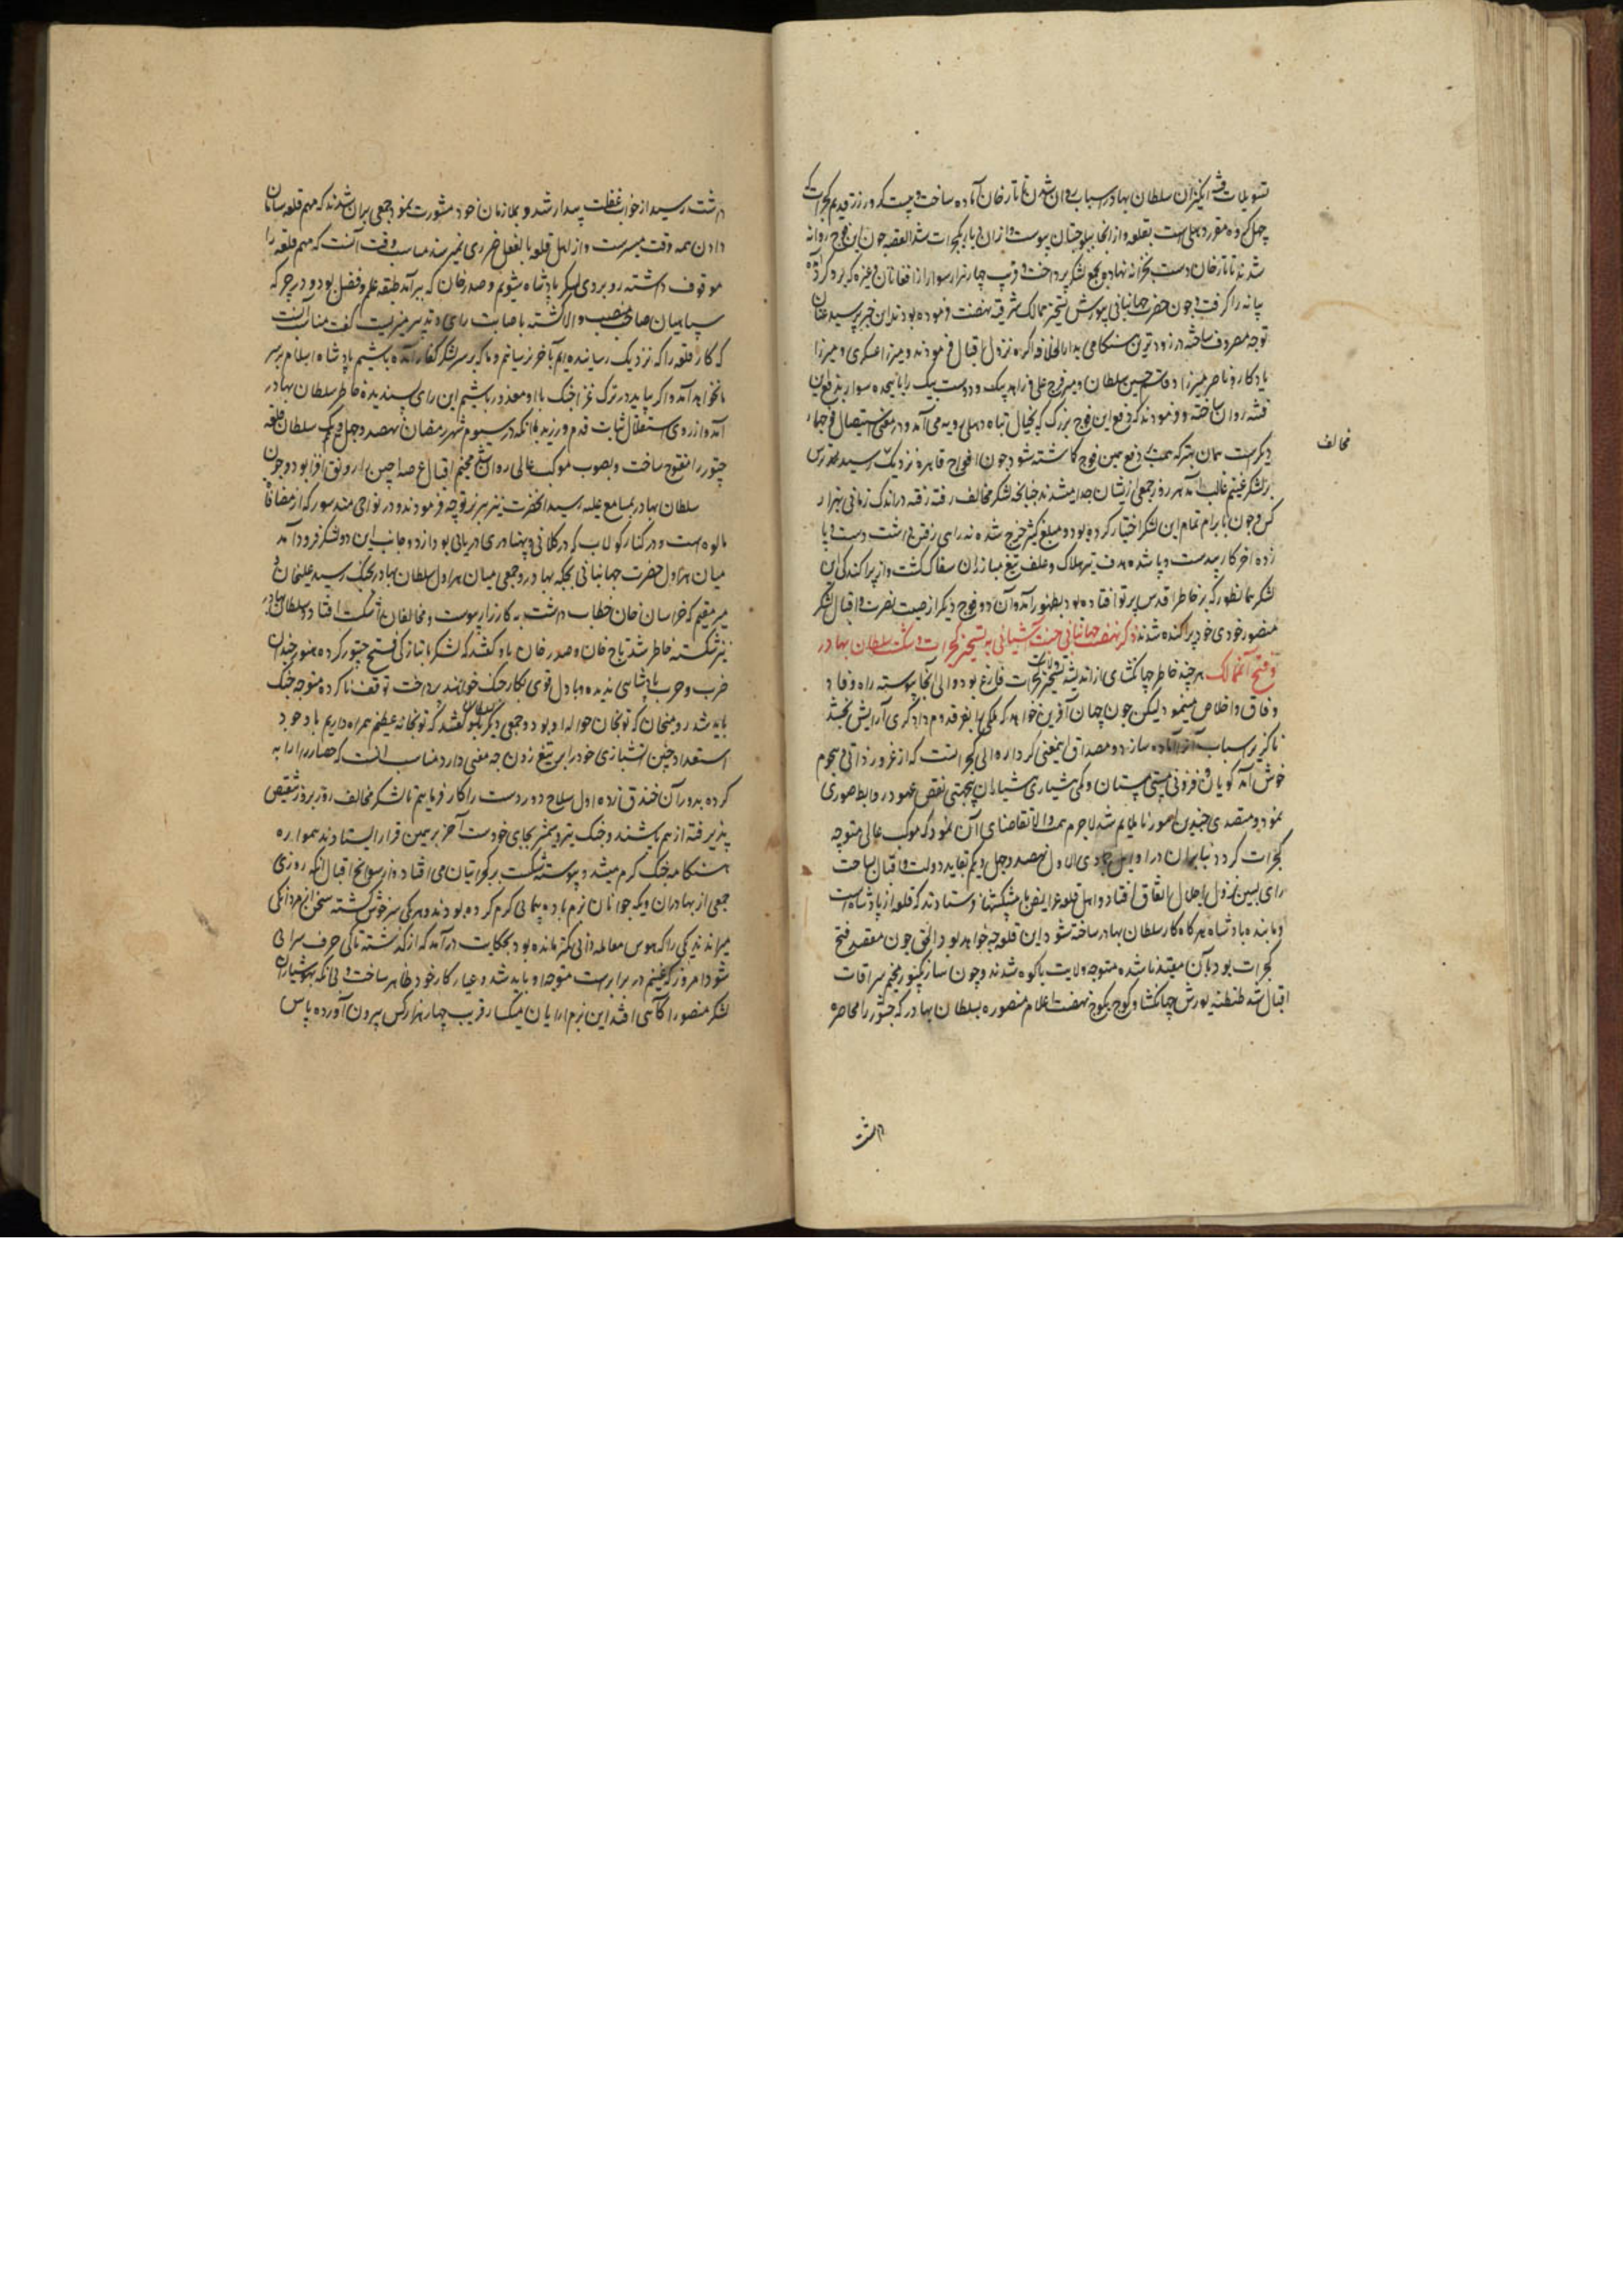 تسویلات فتنه انگیزان سلطان بهادر اسباب روان شدن تاتارخان آماده ساخت و بیست کرور زر قدیم گجرات که
چهل کروه مقرر دهلی است بقلعه
شدند تاتارخان دست بخزانه نهاده بجمع لشکر پرداخت و قریب چهل هزار سوار از افغانان و غیره که برد گرد آمده
بیانه را گرفت و چون حضرت جهانبانی بیورش تسخیر ممالک شرقیه نهضت فرموده بودند این خبر رسید عنان
توجه مصروف ساخته در زودترین هنگامی بدارالخلافه اگره نزول اقبال فرمودند و میرزا عسکری و میرزا
یادکار ناصر میرزا و قاسم حسین سلطان و میر فوج علی و زاهد بیک و دوست بیک را با هیجده سوار بدفع این
فتنه روان ساخته و فرمودند که دفع این فوج بزرگ که بخیال تباه دهلی رویه می آمد و در معنی استیصال فوجهاء
مخالف
دیگرست همان بهتر که همت بدفع همین فوج گماشته شود چون افواج قاهره نزدیک رسید هراس
بر لشکر غنیم غالب آمد هر روز جمعی ازیشان جدا میشدند چنانچه لشکر مخالف رفته رفته در اندک زمانی بهزار
کس و چون بابرام تمام این لشکر اختیار کرده بود و مبلغ کثیر خرج شده نه رای رفتن داشت دست و پا
زده آخر کار بیدست و پا شده هدف تیر هلاک و علف تیغ مبارزان سفاک گشت و از پراکندگی این
لشکر همانطور که بر خاطر اقدس پرتو افتاده بود بظهور آمد و آن دو فوج دیگر از صیت نصرت و اقبال لشکر
منصور خود بخود پراکنده شدند ذکر نهضت جهانبانی جنت آشیانی به تسخیر گجرات و شکست سلطان بهادر
و فتح آن ممالک هر چند خاطر جهانگشای از اندیشه تسخیر ولایت گجرات فارغ بود و والی آنجا پیوسته راه وفاد
و وفاق و اخلاص می پیمود و لیکن چون جهان آفرین خواهد که ملکی را بفر قدوم دادگری آرایش بخشد
ناگزیر اسباب آنرا آماده سازد و مصداق اینمعنی کردار والی گجراتست که از غرور ذاتی و هجوم
خوش آمد گویان و فزونی مستی مستان و کمی هشیاری هشیاران بیجهتی نقض عهود و روابط صوری
نمود و متصدی چندین امور ناملایم شد لاجرم همت والا تقاضای آن نمود که موکب عالی متوجه
گجرات گردد بنابران در اوایل جمادی الاول نهصد و چهل و یکم بقاید دولت و اقبال ساحت
رای سین نزول باجلال اتفاق افتاد و اهل قلعه عرایض با پیشکشها فرستادند که قلعه از پادشاه است
و ما بنده پادشاه هرگاه کار سلطان بهادر ساخته شود این قلوعه چه خواهد بود الحق چون مقصد فتح
گجرات بود بآن مقید ناشده متوجه ولایت بالوه شدند و چون سارنگپور مخیم سرادقات
اقبال شد طنطنه یورش جهانگشا و کوچ بکوچ نهضت اعلام منصوره بسلطان بهادر که چتور را محاصره
داشت
داشت رسید از خواب غفلت بیدار شد و بملازمان خود مشورت نمود جمعی بران شدند که مهم قلعه سامان
دادن همه وقت میسرست و از اهل قلعه بالفعل ضرری نمیرسد مناسب وقت آنست که مهم قلعه را
موقوف داشته رو بروی لشکر پادشاه شویم و صدرخان که سرآمد طبقه علم و فضل بود و در جرگه
سپاهیان صاحب منصب والا گشته باصابت رای و تدبیر میزیست گفت مناسب آنست
که کار قلعه را که نزدیک رسانیده ایم بآخر رسانیم و ما که بر سر لشکر کفار آمده باشیم پادشاه اسلام بر سر
ما نخواهد آمد و اگر بیاید در ترک غزا جنک با او معذور باشیم این رای پسندیده خاطر سلطان بهادر
آمد و از روی استقلال ثابت قدم ورزید تا آنکه در سیوم شهر رمضان نهصد و چهل و یک سلطان قلعه
چتور را مفتوح ساخت و بصوب موکب عالی روان شد مخیم اقبال عرصه اجین را رونق افزا بود و چون
سلطان بهادر بمسامع علیه رسید آنحضرت نیز تیزتر توجه فرمودند و در نواحی مندسور که از مضافات
مالوه است و در کنار کولاب که در کلانی و پهناوری دریائی بود از دو جانب این دو لشکر فرود آمد
میان هراول حضرت جهانبانی بچکه بهادر و جمعی میان هراول سلطان بهادر بجنک رسید علیخان و
میر مقیم که خراسان خان خطاب داشت به کارزار پیوست و مخالفان را شکست افتاد و سلطان بهادر
نیز شکسته خاطر شد تاج خان و صدر خان باو گفتند که لشکر ما بتازگی فتح چتور کرده هنوز چندان
ضرب و حرب پادشاهی ندیده و بدل قوی بکار جنک خواهند پرداخت توقف ناکرده متوجه جنک
باید شد رومیخان که توپخانه حواله او بود و جمعی دیگر بسلطان گفتند که توپخانه عظیم همراه داریم با وجود
استعداد چنین آتشبازی خود را بر تیغ زدن چه معنی دارد مناسب آنست که حصار ارابه
کرده بدور آن خندق زده اول سلاح دوردست را کار فرماییم تا لشکر مخالف روز بروز تنقیص
پذیرفته از هم پاشند و جنک تیر و شمشیر بجای خودست آخر بر همین قرار ایستادند همواره
هنگامه جنک گرم میشد و پیوسته شکست بر گجراتیان می افتاد و از سوانح اقبال آنکه روزی
جمعی از بهادران و یکه جوانان بزم باده پیمایی گرم کرده بودند و هر یکی سرخوش گشته سخن از مردانگی
میراندند یکی را که هوس معامله دانی کمتر مانده بود بحکایت درآمد که از گذشته تا کی حرف سرایی
شود امروز که غنیم در برابرست متوجه او باید شد و عیار کار خود ظاهر ساخت و بی آنکه هوشیاران
لشکر منصور را آگاهی افتد این بزم آرایان میگسار قریب چهار هزار کس بیرون آورده پاس